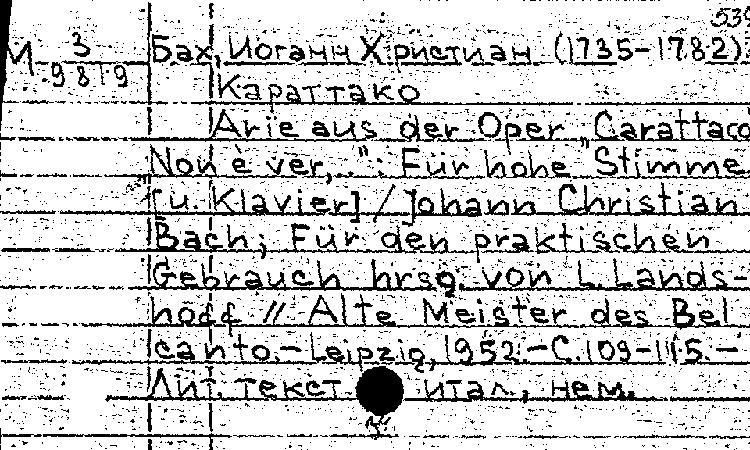 539
М 3/9819 Бах, Иоганн Христиан (1735-1782).
Караттако
Arie aus der Oper „Carattaco
„Non è ver,..": Für hohe Stimme
[u. Klavier] / Johann Christian
Bach; Für den praktischen
Gebrauch hrsg. von L. Lands-
hoff // Alte Meister des Bel
canto.- Leipzig, 1952.-С.109-115.-
Лит. текст итал., нем.